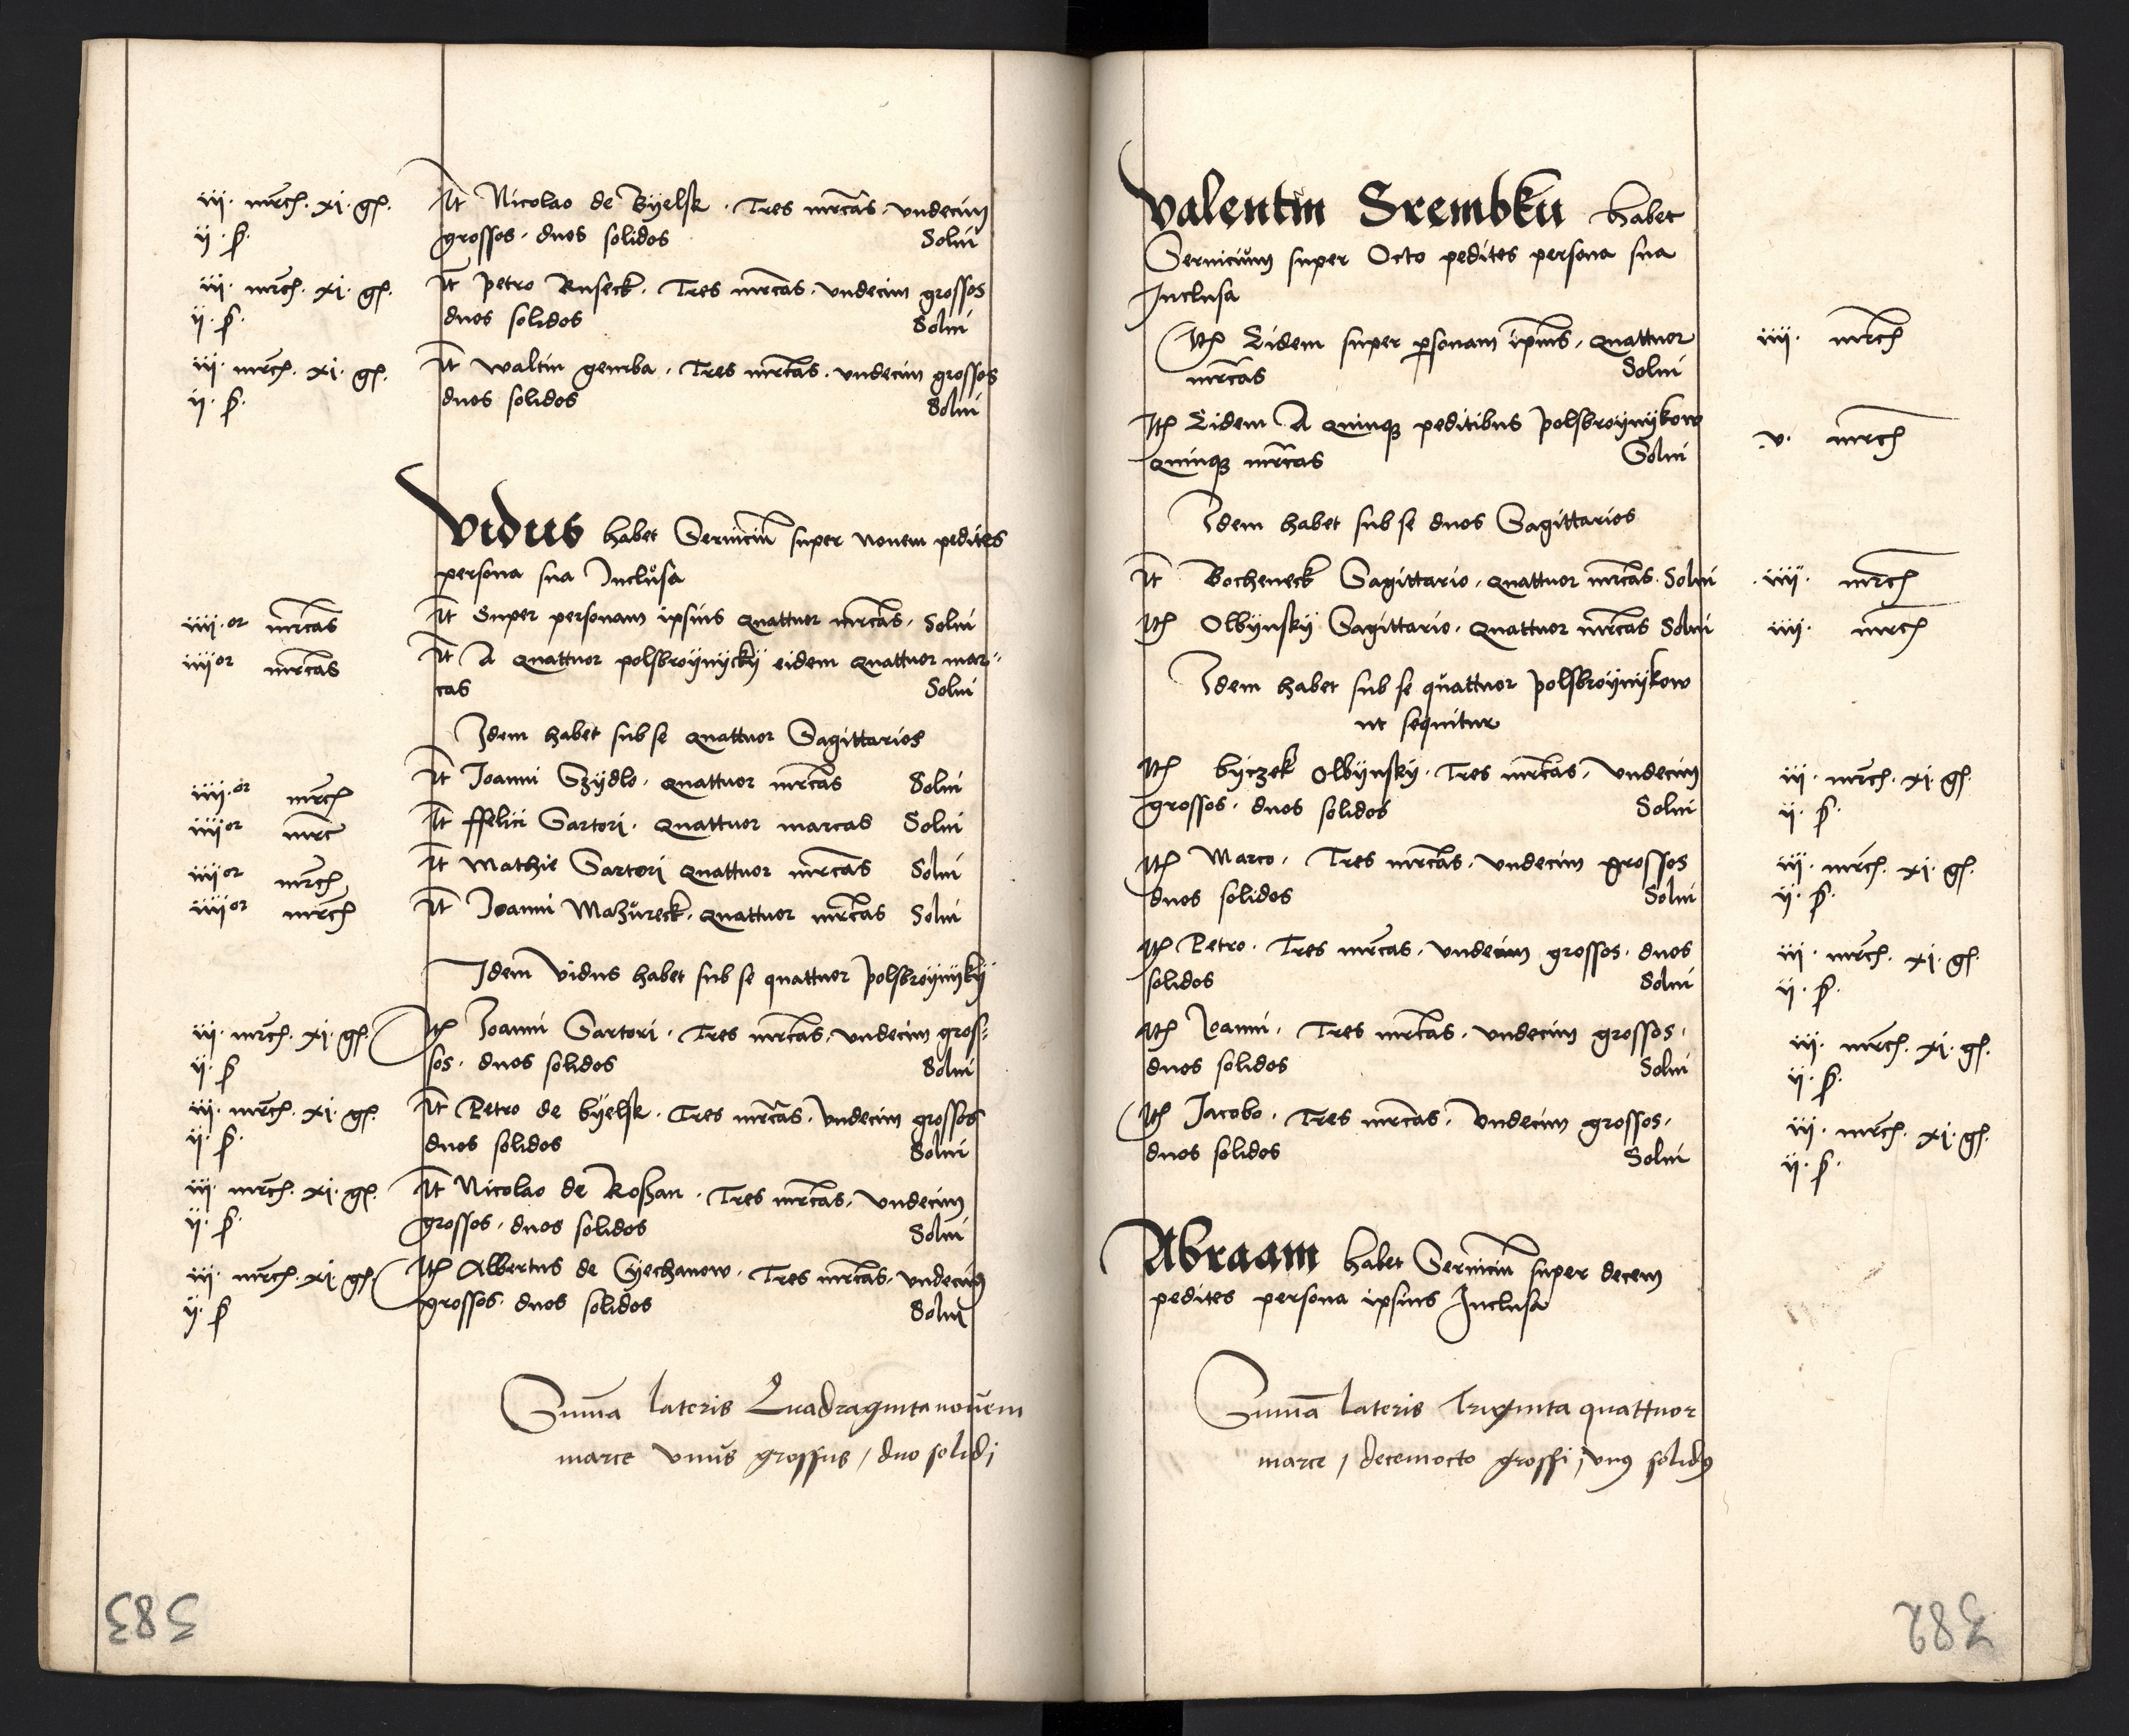 iii · mrch · xi · gs · It Nicolao de Byelsk · Tres mrcas · vndecim
ij · s · grossos · duos solidos Solui
iii · mrch · xi · gs · It petro Ruseck · Tres mrcas · vndecim grossos
ij · s · duos solidos Solui
iii · mrch · xi · gs · It waltin gemba · Tres mrcas · vndecim grossos
ij · s · duos solidos Solui
Vidus habet Seruiciu super nonem pedites
persona sua Inclusa
iiij·or mrcas It Super personam ipsius quattuor mrcas · Solui
iiijor mrcas It A quattuor polsbroynycky eidem quattuor mar-
cas Solui
Idem habet sub se quattuor Sagittarios
iiij·or mrch It Joanni Szydlo · quattuor mrcas Solui
iiijor mrc It ffelici Sartori · quattuor marcas Solui
iiijor mrch It Mathie Sartori quattuor mrcas Solui
iiijor mrch It Joanni Mazureck · quattuor mrcas Solui
Idem Vidus habet sub se quattuor polsbroynyky
iii · mrch · xi · gs · Ith Joanni Sartori · Tres mrcas · vndecim gros-
ij · s sos · duos solidos Solui
iii · mrch · xi · gs · It Petro de byelsk · Tres mrcas · vndecim grossos
ij · s · duos solidos Solui
iii · mrch · xi · gs · It Nicolao de Roszan · Tres mrcas · vndecim
ij · s · grossos · duos solidos Solui
iii · mrch · xi · gs · Ith Albertus de Cyechanow · Tres mrcas · vndecim
ij · s grossos · duos solidos Solui
Suma lateris Quadragintanouem
marce vnus grossus / duo solidi
383
Valentin Srembku habet
Seruicium super Octo pedites persona sua
Inclusa
Ith Eidem super psonam ipius · quattuor iiij · mrch
mrcas Solui
Ith Eidem A quinq peditibus polsbroynykow v · mrch
quinq mrcas Solui
Idem habet sub se duos Sagittarios
It Bocheneck Sagittario · quattuor mrcas · Solui iiij · mrch
Ith Olbynsky Sagittario · quattuor mrcas Solui iiij · mrch
Idem habet sub se quattuor polsbroynykow
ut sequitur
Ith byczek olbynsky · Tres mrcas · vndecim iii · mrch · xi · gs ·
grossos · duos solidos Solui ij · s ·
Ith Marco · Tres mrcas · vndecim grossos iii · mrch · xi · gs ·
duos solidos Solui ij · s ·
Ith Petro · Tres mrcas · vndecim grossos · duos iii · mrch · xi · gs ·
solidos Solui ij · s ·
Ith Joanni · Tres mrcas · vndecim grossos · iii · mrch · xi · gs ·
duos solidos Solui ij · s ·
Ith Jacobo · Tres mrcas · vndecim grossos · iii · mrch · xi · gs ·
duos solidos Solui ij · s ·
Abraam habet Seruiciu super decem
pedites persona ipsius Inclusa
Suma lateris Triginta quattuor
marce / decemocto grossi / vnus solidus
382